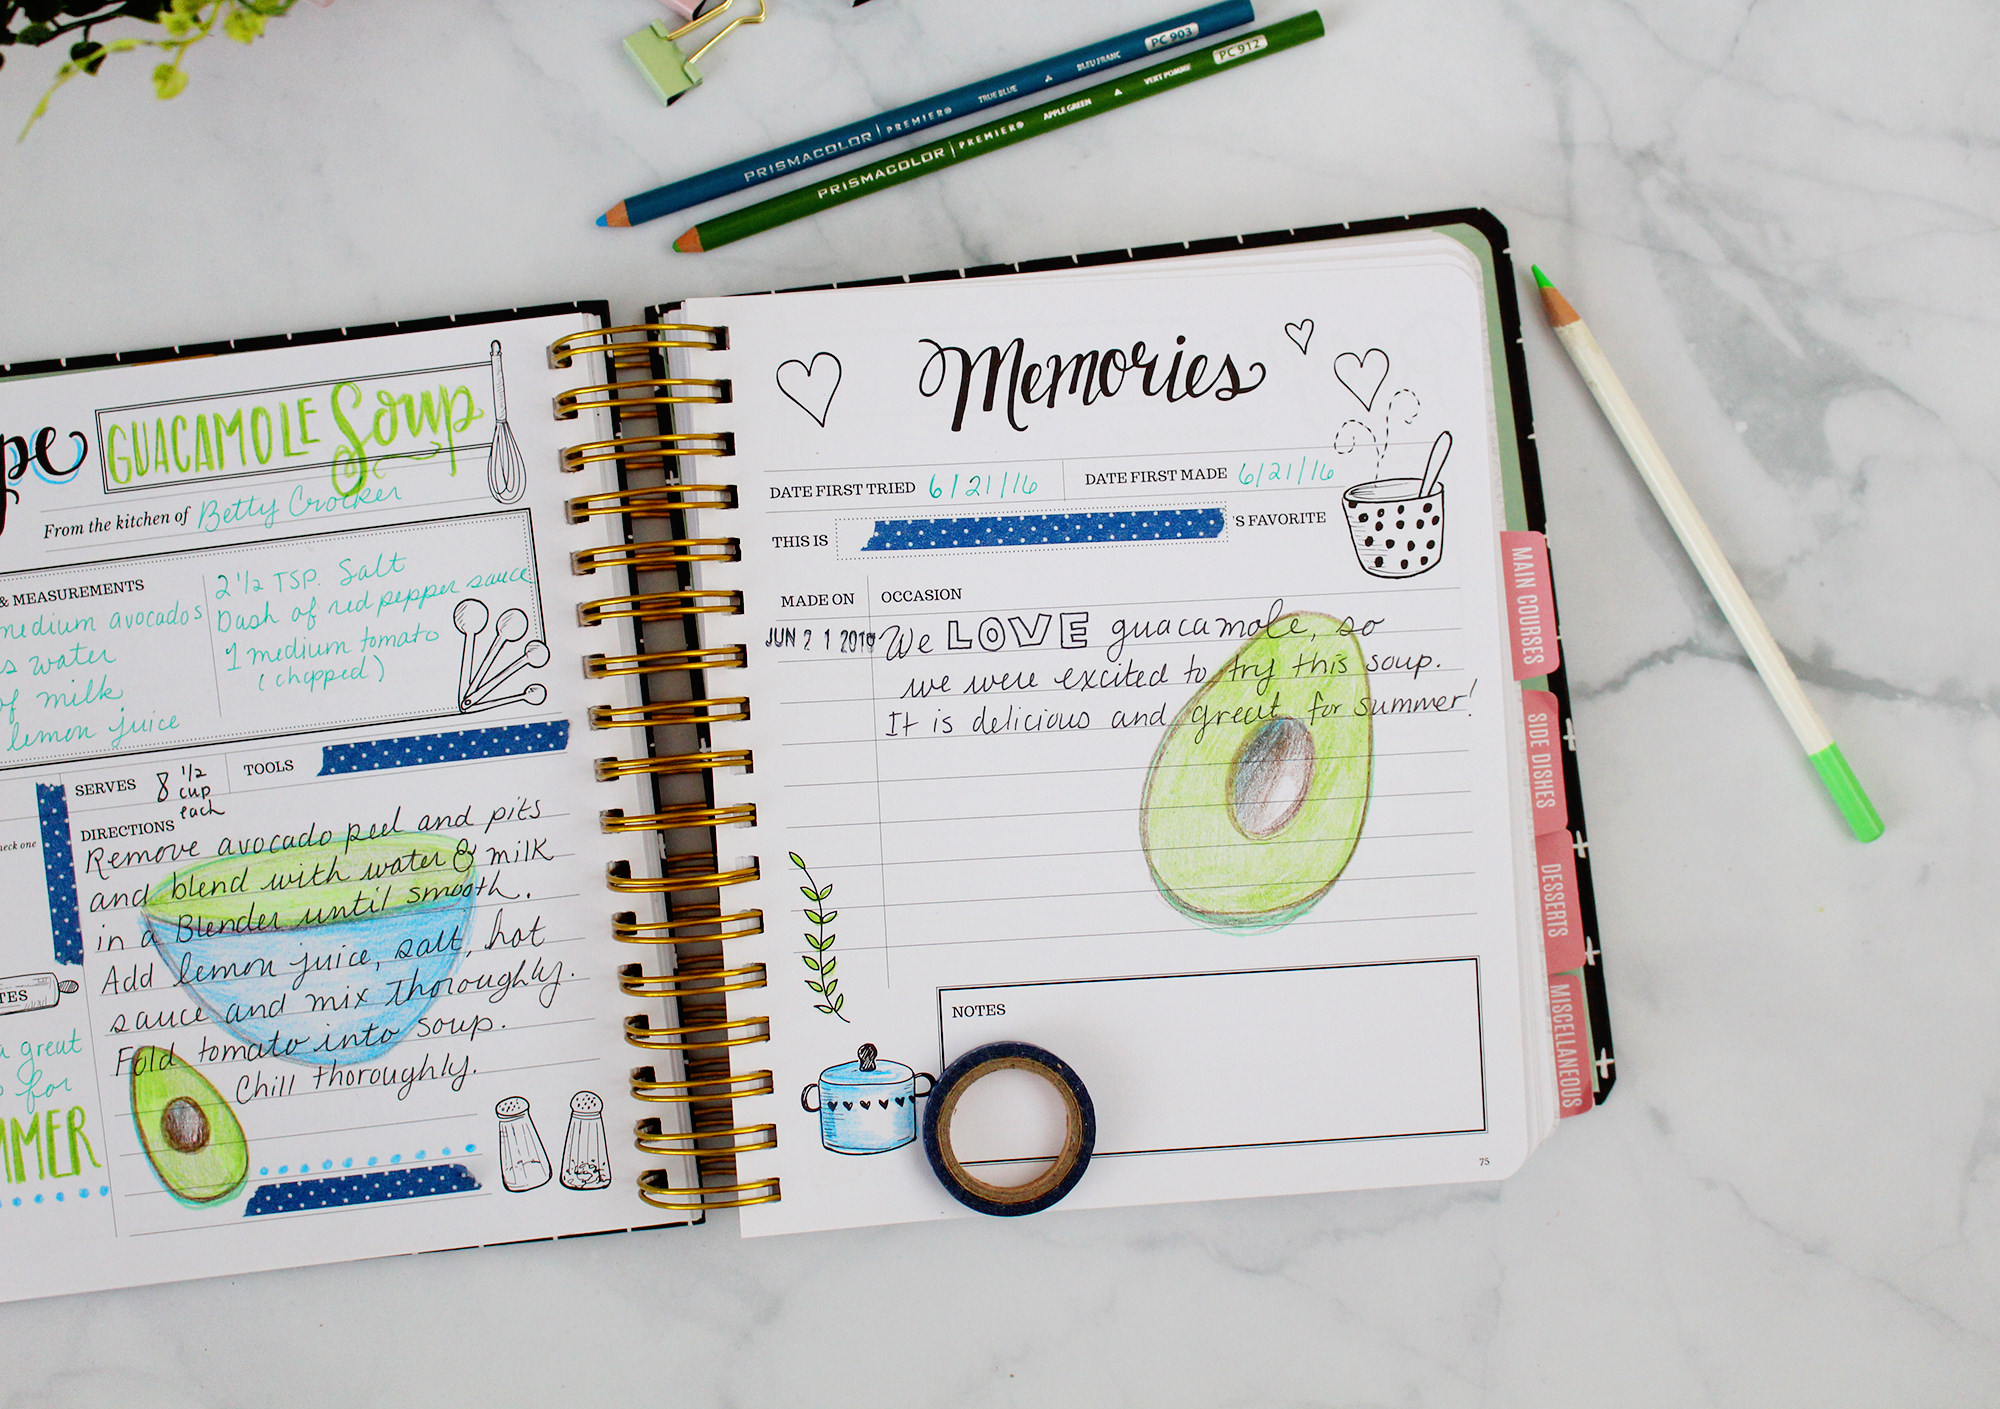 PRISMACOLOR PREMIER® TRUE BLUE ▵ BLEU FRANC PC 903
PRISMACOLOR PREMIER® APPLE GREEN ▵ VERT POMME PC 912
GUACAMOLE Soup
From the kitchen of Betty Crocker
& MEASUREMENTS
medium avocados
water
of milk
lemon juice
2 1/2 TSP. Salt
Dash of red pepper sauce
1 medium tomato
(chopped)
SERVES 8 1/2 cup each
TOOLS
DIRECTIONS
Remove avocado peel and pits
and blend with water & milk
in a Blender until smooth.
Add lemon juice, salt, hot
sauce and mix thoroughly.
Fold tomato into soup.
Chill thoroughly.
one
a great
for
Memories
DATE FIRST TRIED 6/21/16 DATE FIRST MADE 6/21/16
THIS IS 'S FAVORITE
MADE ON OCCASION
JUN 21 We LOVE guacamole, so
we were excited to try this soup.
It is delicious and great for summer!
NOTES
75
MAIN COURSES
SIDE DISHES
DESSERTS
MISCELLANEOUS